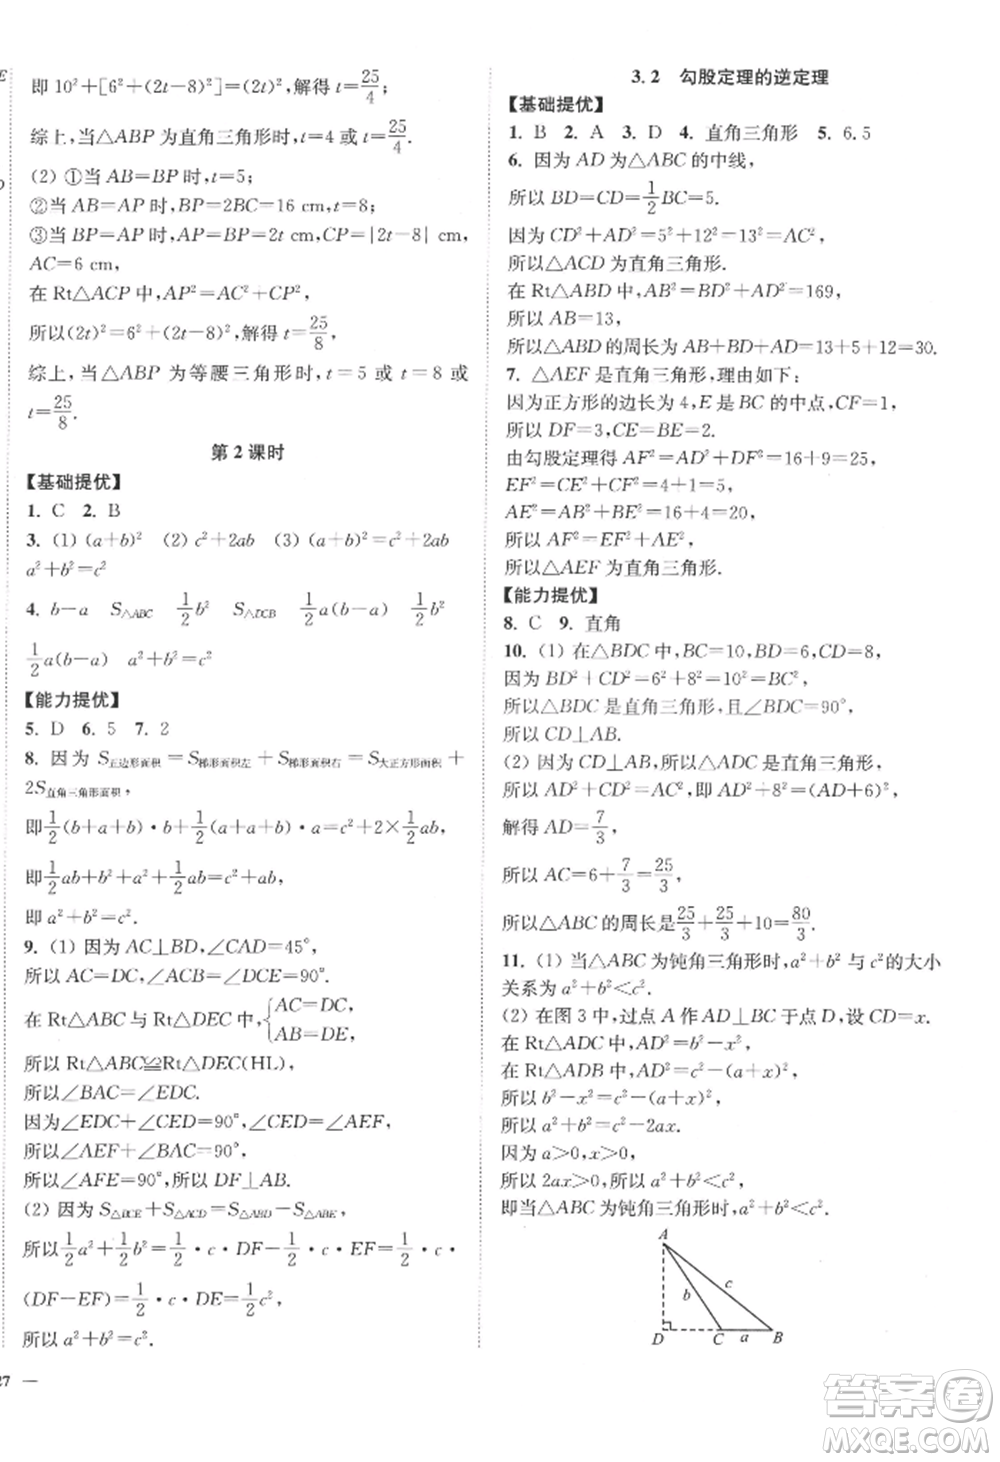 E
即 10²+[6²+(2t-8)²]=(2t)²,解得 t=25/4.
综上,当△ABP 为直角三角形时,t=4 或 t=25/4.
(2) ①当 AB=BP 时,t=5;
②当 AB=AP 时,BP=2BC=16 cm,t=8;
③当 BP=AP 时,AP=BP=2t cm,CP=|2t-8| cm,
AC=6 cm,
在 Rt△ACP 中,AP²=AC²+CP²,
所以(2t)²=6²+(2t-8)²,解得 t=25/8,
综上,当△ABP 为等腰三角形时,t=5 或 t=8 或
t=25/8.
第 2 课时
【基础提优】
1. C 2. B
3. (1) (a+b)² (2) c²+2ab (3) (a+b)²=c²+2ab
a²+b²=c²
4. b-a S△ABC 1/2b² S△DCB 1/2a(b-a) 1/2b²
1/2a(b-a) a²+b²=c²
【能力提优】
5. D 6. 5 7. 2
8. 因为 S五边形面积=S梯形面积左+S梯形面积右=S大正方形面积+
2S直角三角形面积,
即1/2(b+a+b)·b+1/2(a+a+b)·a=c²+2×1/2ab,
即1/2ab+b²+a²+1/2ab=c²+ab,
即 a²+b²=c².
9. (1) 因为 AC⊥BD,∠CAD=45°,
所以 AC=DC,∠ACB=∠DCE=90°.
在 Rt△ABC 与 Rt△DEC 中,{AC=DC,
AB=DE,
所以 Rt△ABC≌Rt△DEC(HL),
所以∠BAC=∠EDC.
因为∠EDC+∠CED=90°,∠CED=∠AEF,
所以∠AEF+∠BAC=90°.
所以∠AFE=90°,所以 DF⊥AB.
(2) 因为 S△BCE+S△ACD=S△ABD-S△ABE,
所以1/2a²+1/2b²=1/2·c·DF-1/2·c·EF=1/2·c·
(DF-EF)=1/2·c·DE=1/2c²,
所以 a²+b²=c².
27 —
3.2 勾股定理的逆定理
【基础提优】
1. B 2. A 3. D 4. 直角三角形 5. 6.5
6. 因为 AD 为△ABC 的中线,
所以 BD=CD=1/2BC=5.
因为 CD²+AD²=5²+12²=13²=AC²,
所以△ACD 为直角三角形.
在 Rt△ABD 中,AB²=AD²+BD²=169,
所以 AB=13,
所以△ABD 的周长为 AB+BD+AD=13+5+12=30.
7. △AEF 是直角三角形,理由如下:
因为正方形的边长为 4,E 是 BC 的中点,CF=1,
所以 DF=3,CE=BE=2.
由勾股定理得 AF²=AD²+DF²=16+9=25,
EF²=CE²+CF²=4+1=5,
AE²=AB²+BE²=16+4=20,
所以 AF²=EF²+AE²,
所以△AEF 是直角三角形.
【能力提优】
8. C 9. 直角
10. (1) 在△BDC 中,BD=6,CD=8,
因为 BD²+CD²=6²+8²=10²=BC²,
所以△BDC 是直角三角形,且∠BDC=90°,
所以 CD⊥AB.
(2) 因为 CD⊥AB,所以△ADC 是直角三角形,
所以 AD²+CD²=AC²,即 AD²+8²=(AD+6)²,
解得 AD=7/3,
所以 AC=6+7/3=25/3,
所以△ABC 的周长是25/3+25/3+10=80/3.
11. (1) 当△ABC 为钝角三角形时,a²+b² 与 c²的大小
关系为 a²+b²<c².
(2) 在图 3 中,过点 A 作 AD⊥BC 于点 D,设 CD=x.
在 Rt△ADC 中,AD²=b²-x²,
在 Rt△ADB 中,AD²=c²-(a+x)²,
所以 b²-x²=c²-(a+x)²,
所以 a²+b²=c²-2ax.
因为 a>0,x>0,
所以 2ax>0,所以 a²+b²<c²,
即当△ABC 为钝角三角形时,a²+b²<c².
A
b
c
D
C
a
B
答案卷
MXQE.COM